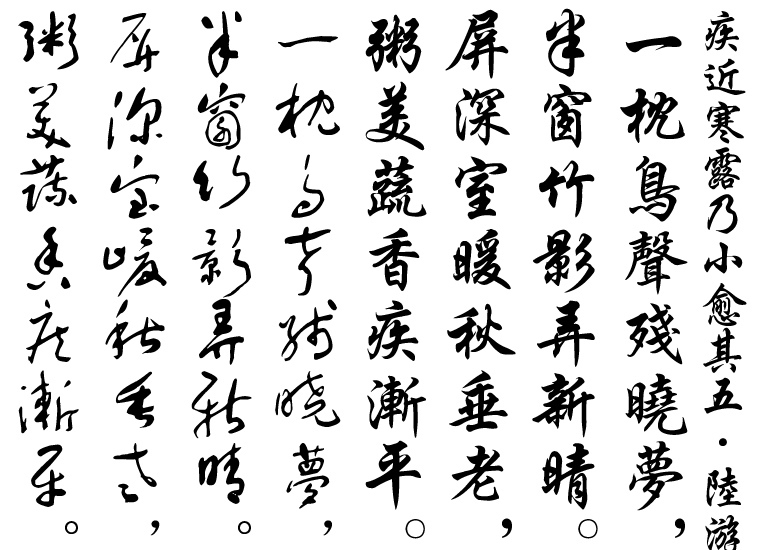 疾近寒露乃小愈其五·陸游
一枕鳥聲殘曉夢，
半窗竹影弄新晴。
屏深室暖秋垂老，
粥美蔬香疾漸平。
一枕鳥聲殘曉夢，
半窗竹影弄新晴。
屏深室暖秋垂老，
粥美蔬香疾漸平。